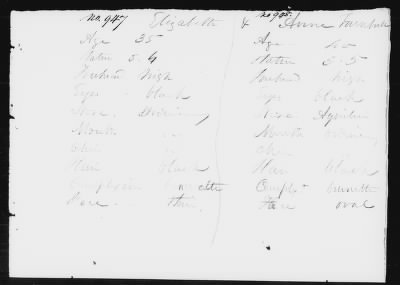 No. 947 Elizabeth & No 908. Anne Turnbull
Age 35
Statu 5.4
Forehead high
Eyes - black
Nose. Ordinary
Mouth "
Chin "
Hair black
Complexion brunette
Face - thin.
Age 40
Statu 5.5
Forehead high
Eyes black
Nose Aquiline
Mouth ordinary
Chin
Hair black
Compl- brunette
Face oval